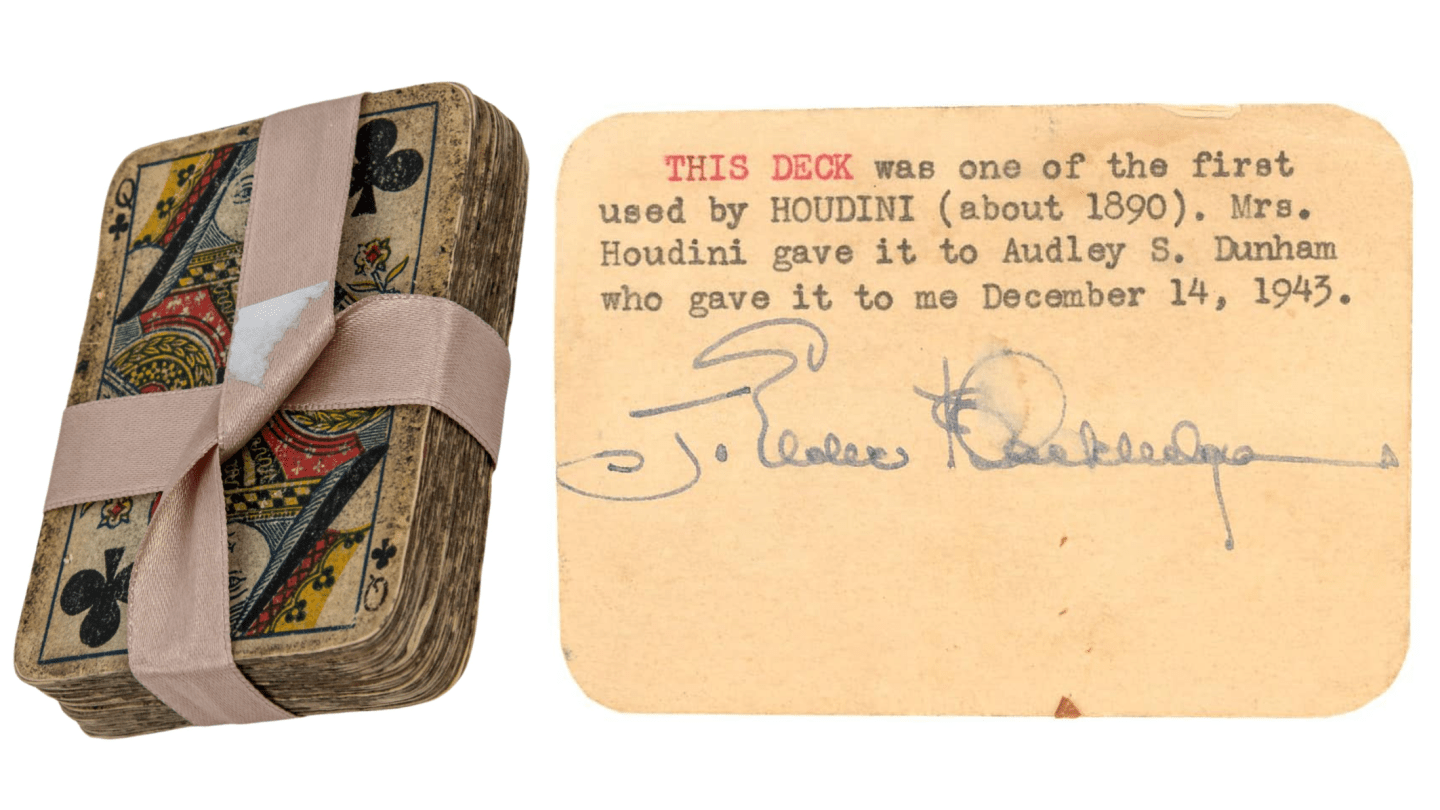 Q
Q
THIS DECK was one of the first
used by HOUDINI (about 1890). Mrs.
Houdini gave it to Audley S. Dunham
who gave it to me December 14, 1943.
J. Elder Blackledge